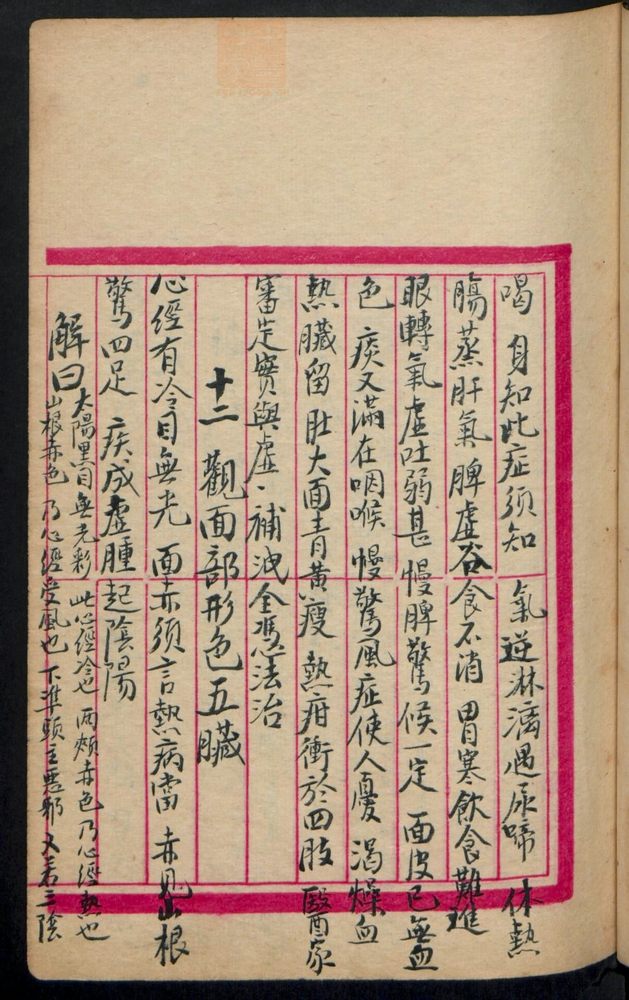 喝 身知此症須知 氣逆淋漓遇尿啼 体熱
腸蒸肝氣 脾虛谷食不消 胃寒飲食難進
眼轉氣虛吐弱甚 慢脾驚候一定 面皮已無血
色 痰又滿在咽喉 慢驚風症使人憂 渴燥血
熱臟留 肚大面青黃瘦 熱疳衝於四肢 醫家
審定實與虛 補洩全馮法治
十二 觀面部形色五臟
心經有冷目無光 面赤須言熱病當 赤見山根
驚四足 疾成虛腫起陰陽
解曰 太陽黑目無光彩 此心經冷也 兩頰赤色乃心經熱也
山根赤色 乃心經受風也 下準頭主悪邪 又若三陰